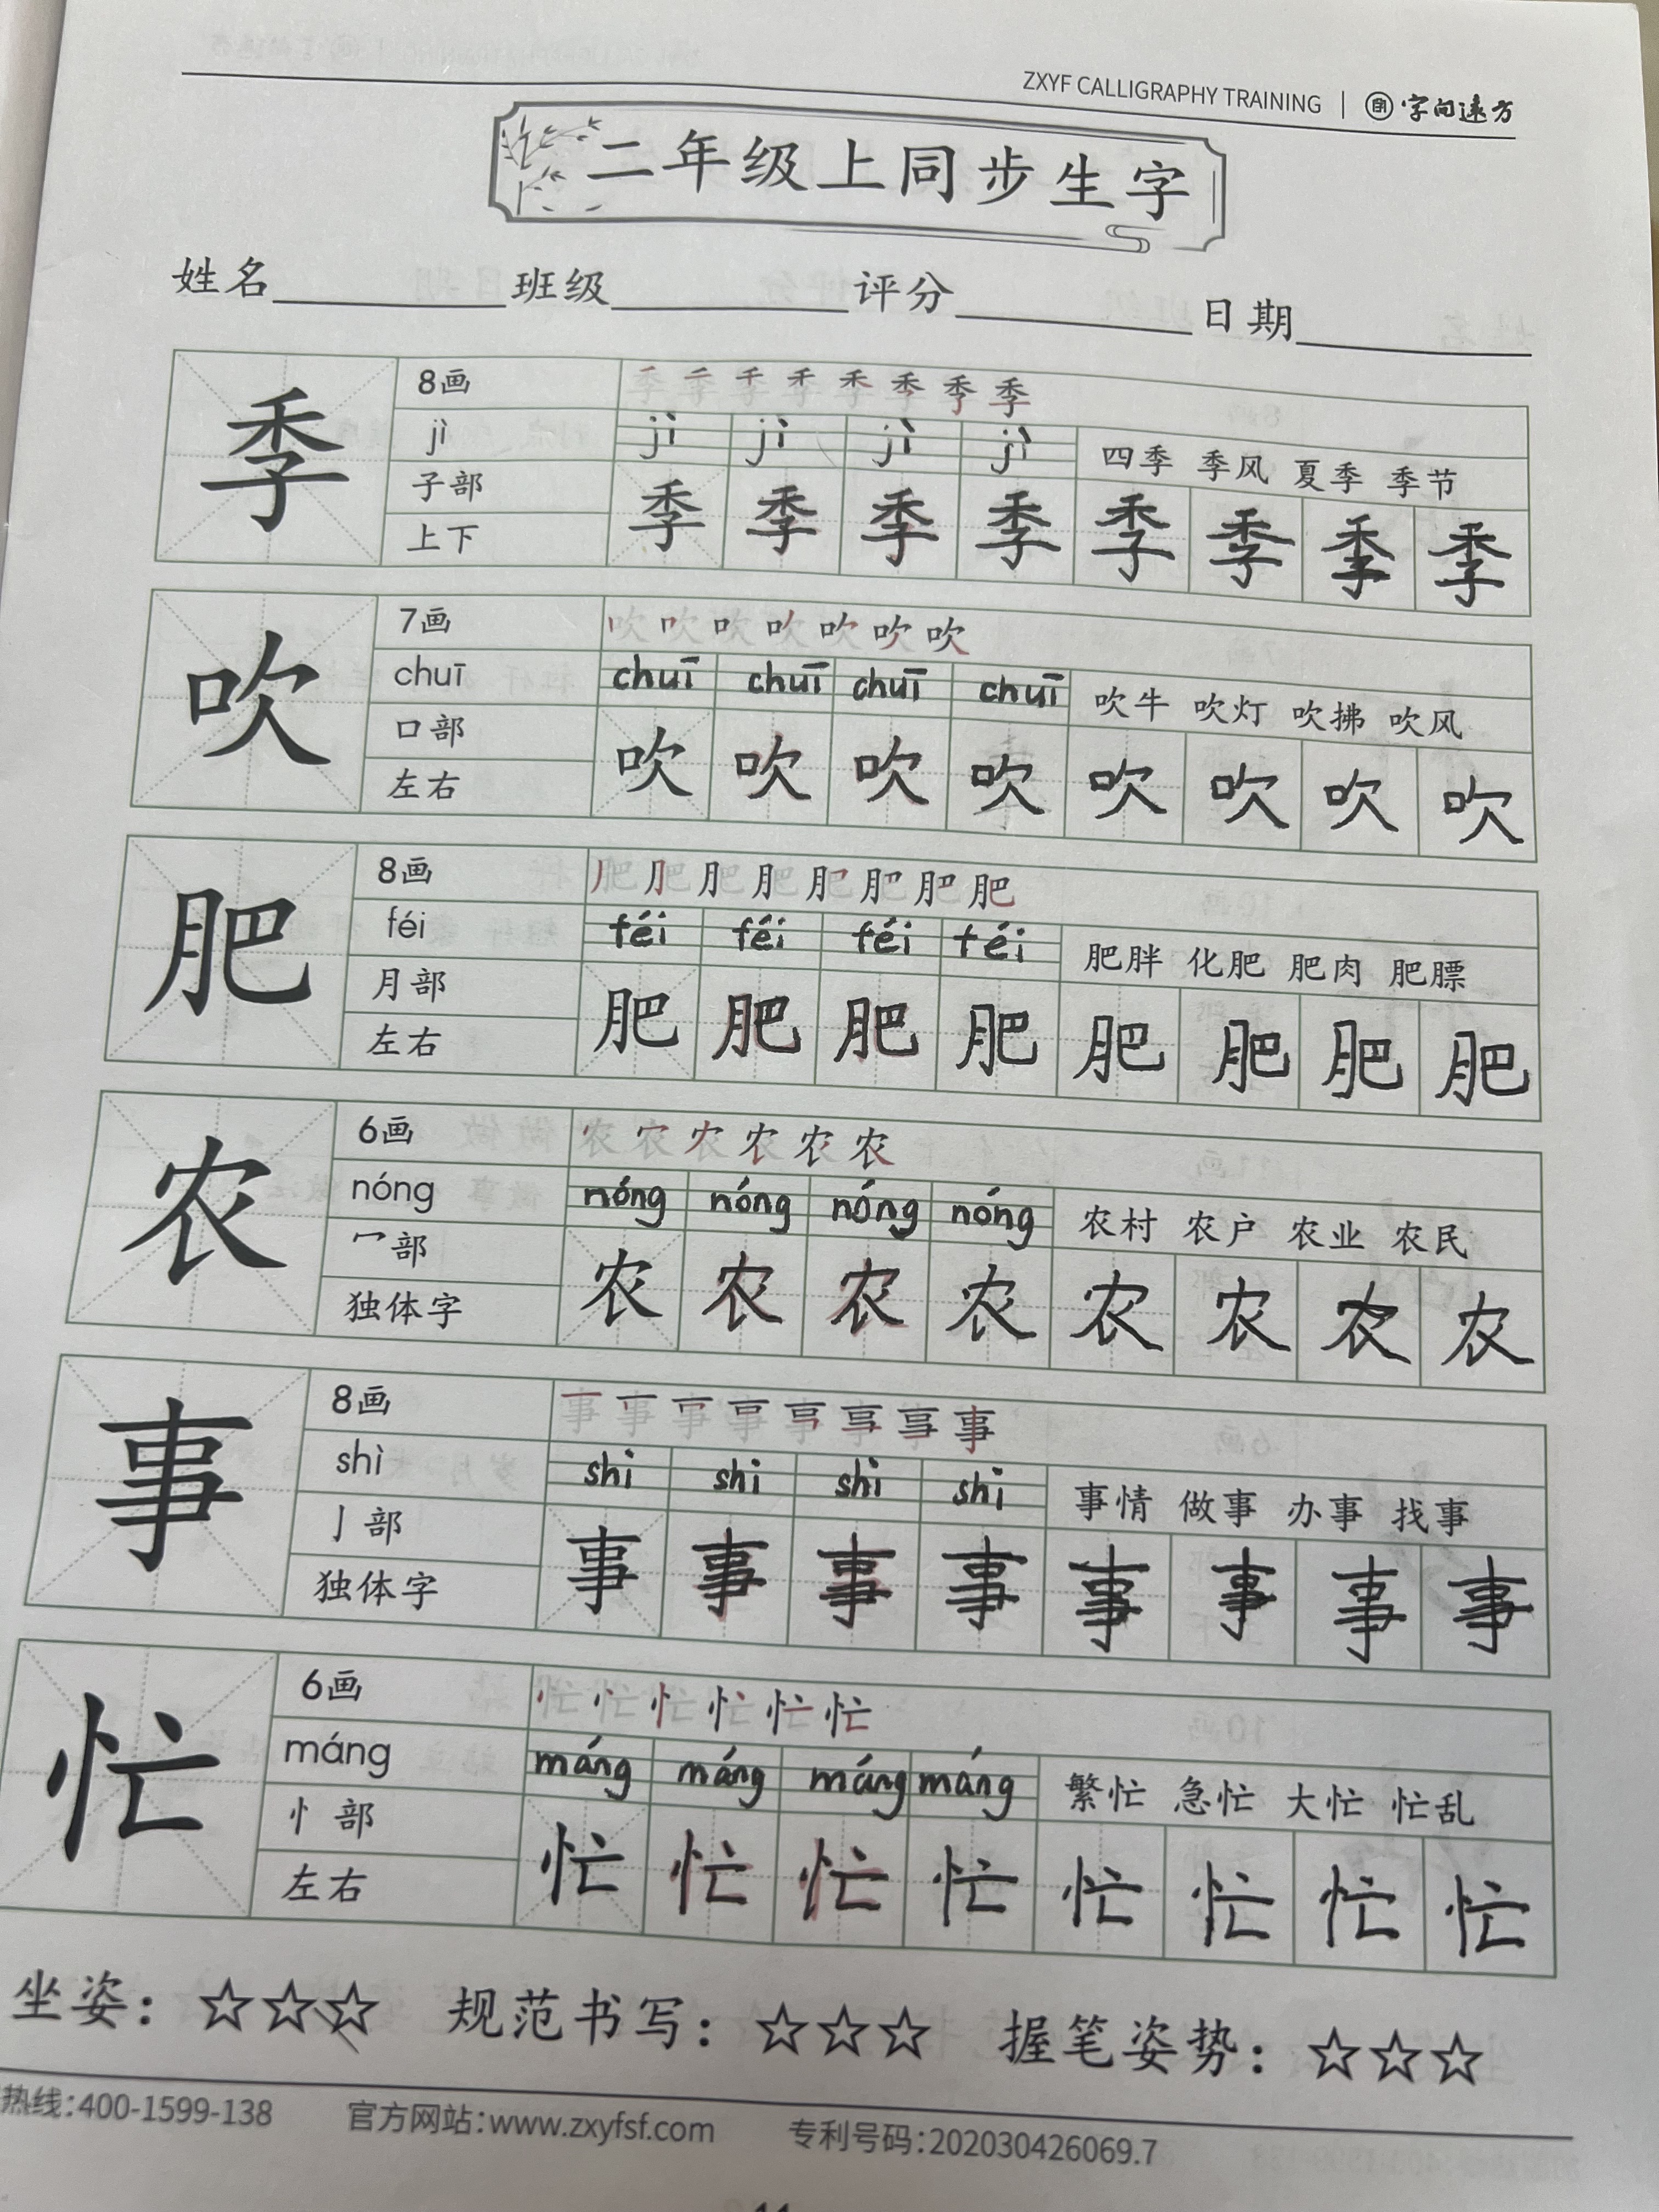 ZXYF CALLIGRAPHY TRAINING | 字向远方
二年级上同步生字
姓名 班级 评分 日期
季 8画
jì jì jì jì jì 四季 季风 夏季 季节
子部
上下 季 季 季 季 季 季 季 季
吹 7画 吹 吹 吹 吹 吹 吹 吹
chuī chuī chuī chuī chuī 吹牛 吹灯 吹拂 吹风
口部
左右 吹 吹 吹 吹 吹 吹 吹 吹
肥 8画
féi féi féi féi féi 肥胖 化肥 肥肉 肥膘
月部
左右 肥 肥 肥 肥 肥 肥 肥 肥
农 6画 农 农 农 农 农 农
nóng nóng nóng nóng nóng 农村 农户 农业 农民
冖部
独体字 农 农 农 农 农 农 农 农
事 8画 事 事 事 事 事 事 事 事
shì shì shì shì shì 事情 做事 办事 找事
亅部
独体字 事 事 事 事 事 事 事 事
忙 6画 忙 忙 忙 忙 忙 忙
máng máng máng máng máng 繁忙 急忙 大忙 忙乱
忄部
左右 忙 忙 忙 忙 忙 忙 忙 忙
坐姿：☆☆☆ 规范书写：☆☆☆ 握笔姿势：☆☆☆
热线:400-1599-138 官方网站:www.zxyfsf.com 专利号码:202030426069.7